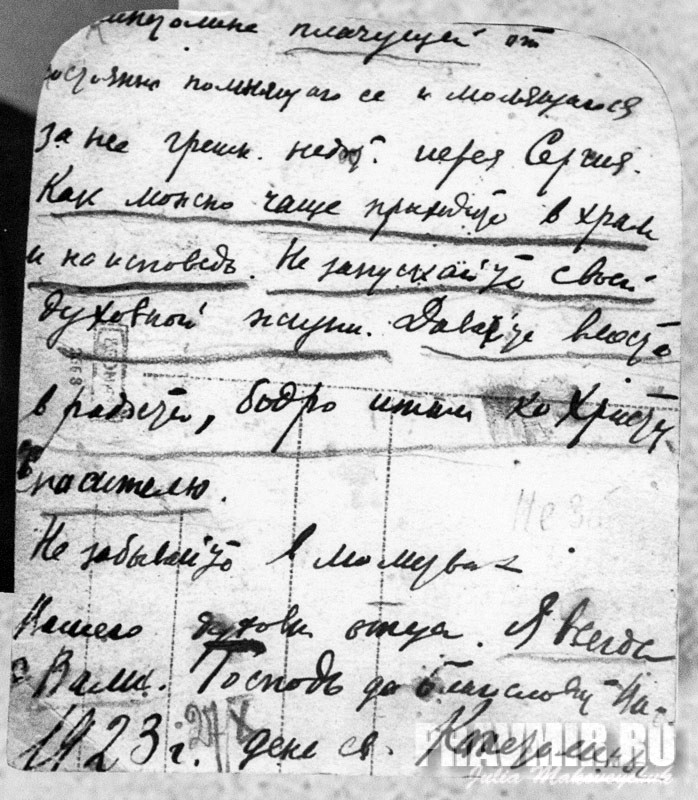 Капетолине плачущей от
постоянно помнящаго ее и молящагося
за нее грешн. недос. иерея Сергия.
Как можно чаще приходите в храм
и на исповедь. Не запускайте своей
духовной жизни. Давайте вместе
в работе, бодро итти ко Христу
Спасителю.
Не забывайте в молитвах
Вашего духовн отца. Я всегда
с Вами. Господь да благословит Ва-
1923 г. 27/X день св. Капетолины
PRAVMIR.RU
Julia Makoveychuk